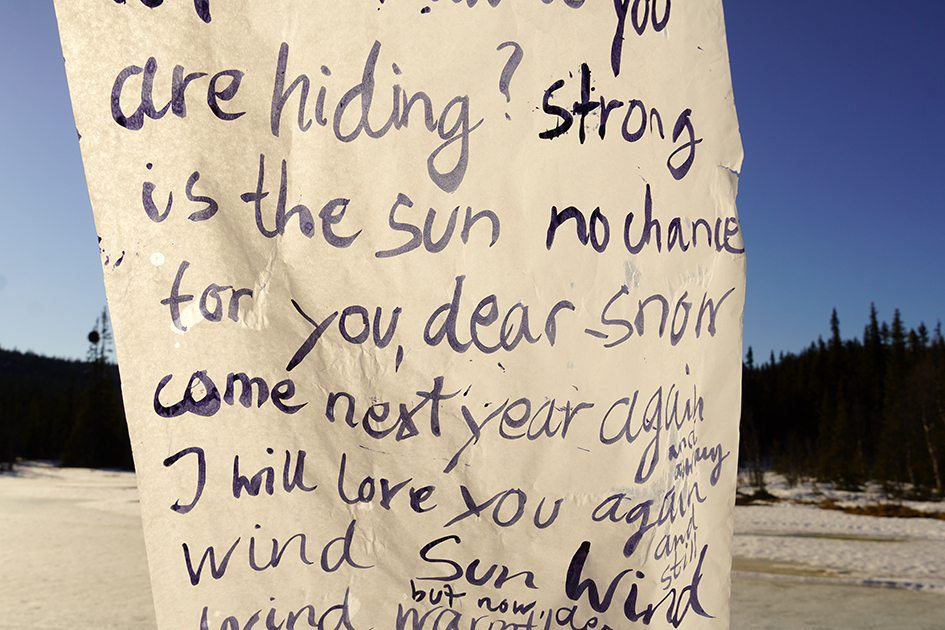 you
are hiding? strong
is the sun no chance
for you, dear snow
come next year again
and
I will love you again
and
still
wind sun wind
but now,
wind